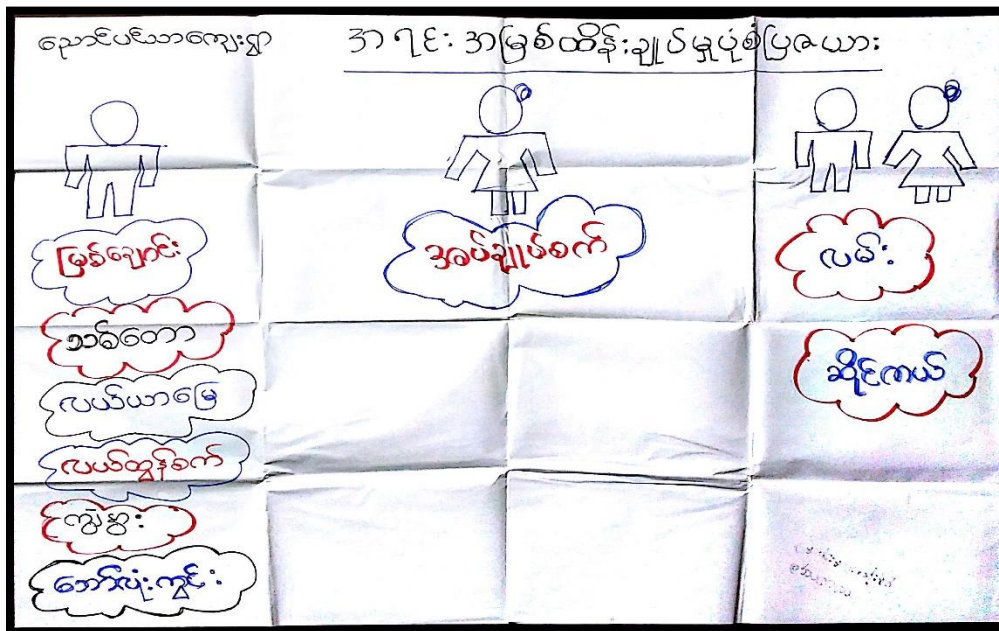 ညောင်ပင်သာကျေးရွာ
အရင်းအမြစ်ထိန်းချုပ်မှုပုံစံပြဇယား
မြစ်ချောင်း
သစ်တော
လယ်ယာမြေ
လယ်ထွန်စက်
ကျွဲနွား
ဘောလုံးကွင်း
အပ်ချုပ်စက်
လမ်း
ဆိုင်ကယ်